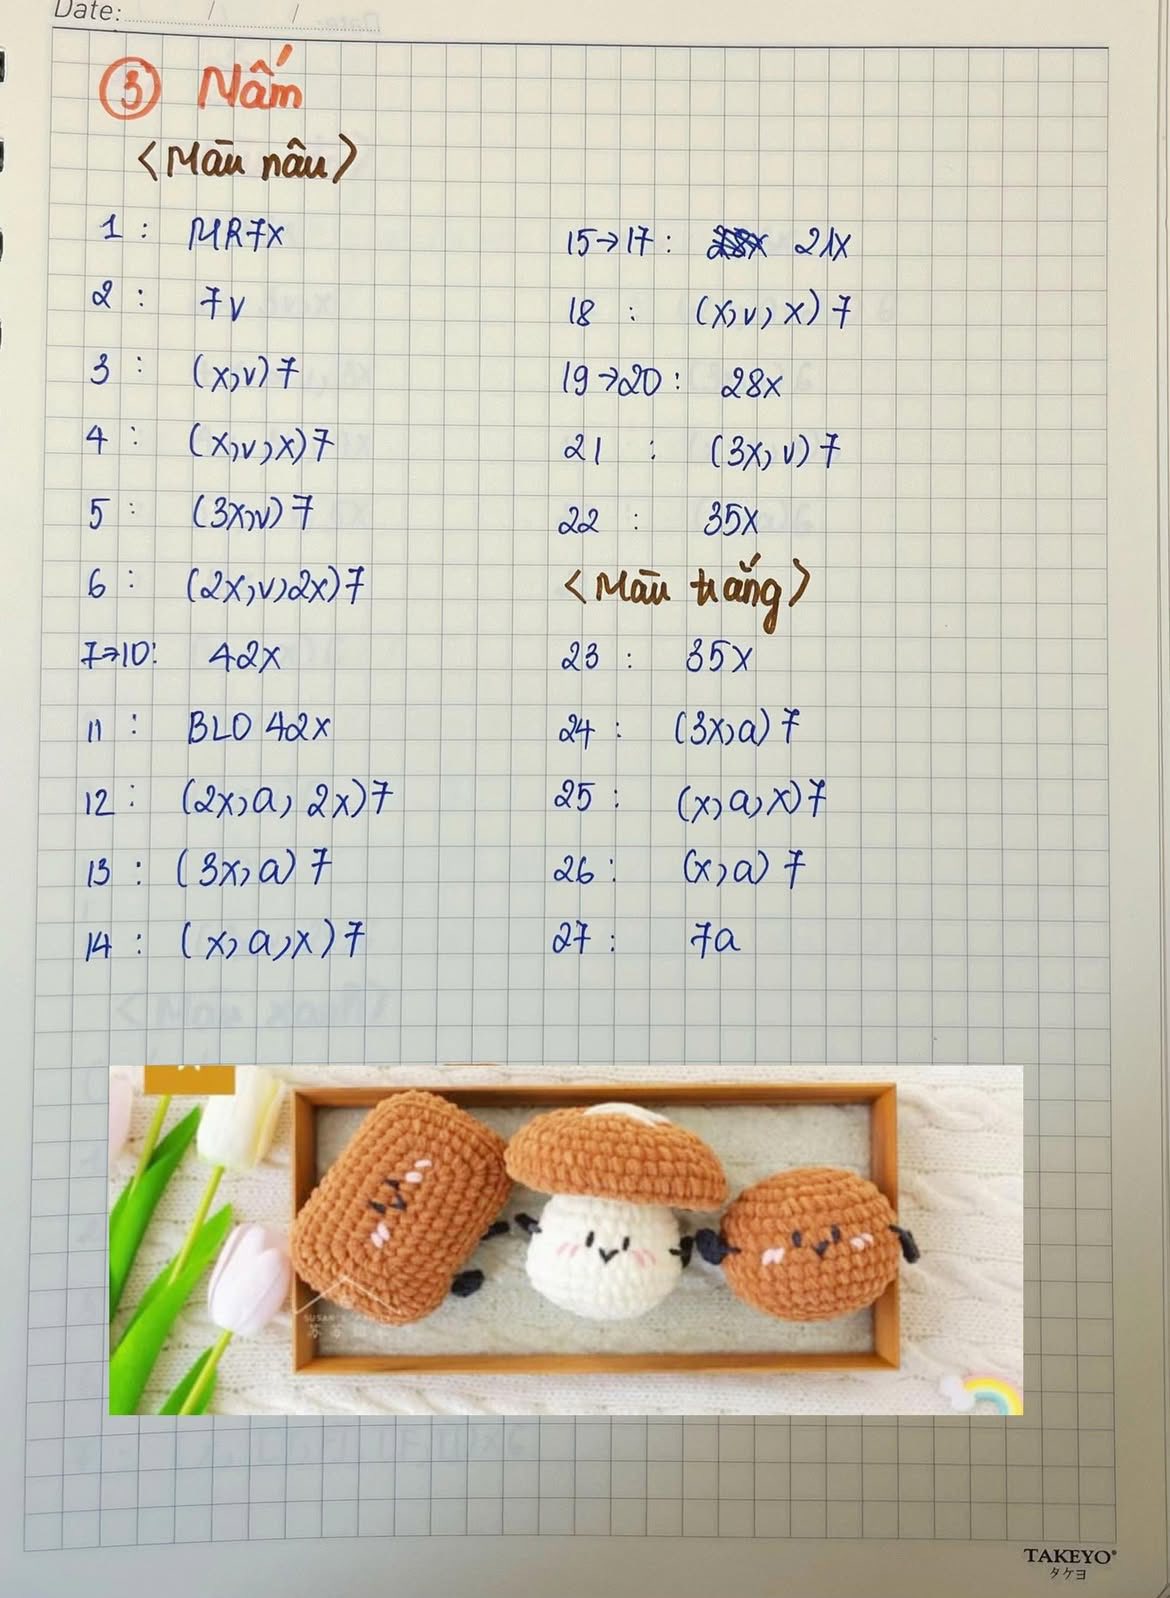 Date: / /
③ Nấm
<Màu nâu>
1 : MR7x
2 : 7v
3 : (x,v)7
4 : (x,v,x)7
5 : (3x,v)7
6 : (2x,v,2x)7
7→10: 42x
11 : BLO 42x
12 : (2x,a, 2x)7
13 : (3x,a)7
14 : (x,a,x)7
15→17 : 21x
18 : (x,v,x)7
19→20 : 28x
21 : (3x,v)7
22 : 35x
<Màu trắng>
23 : 35x
24 : (3x,a)7
25 : (x,a,x)7
26 : (x,a)7
27 : 7a
TAKEYO®
タケヨ